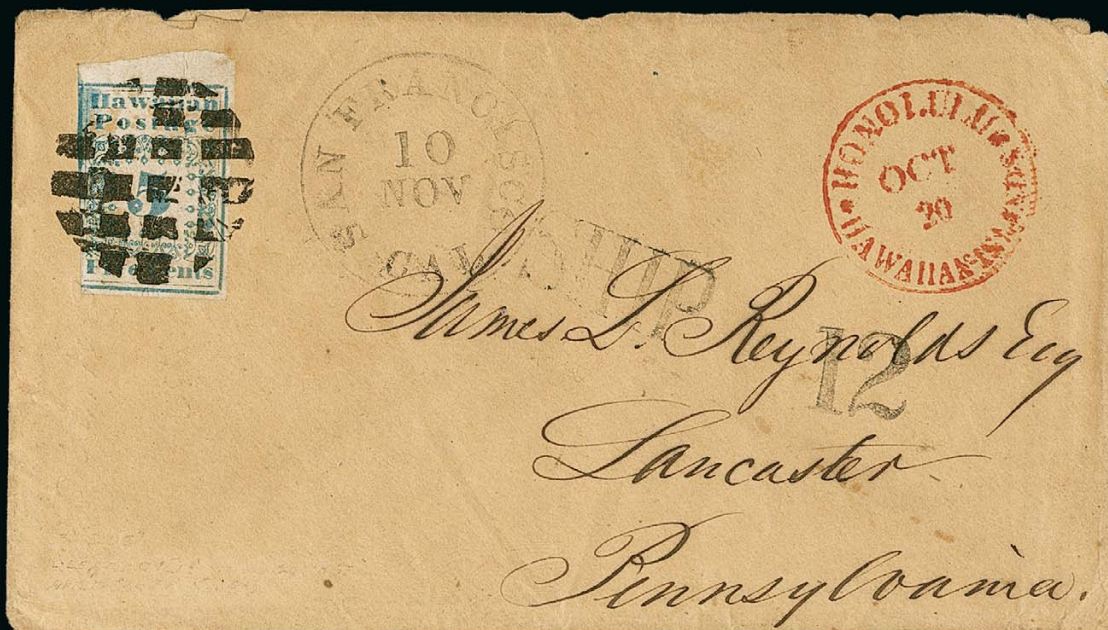 Hawaiian
Postage
5
Five Cents
SAN FRANCISCO
10
NOV
CAL.
SHIP
HONOLULU * HAWAIIAN-ISLANDS *
OCT
20
12
James L. Reynolds Esq
Lancaster
Pennsylvania.